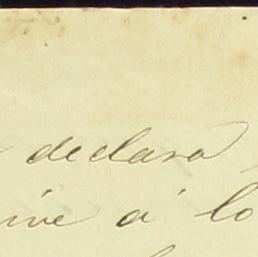 declara
ive á lo